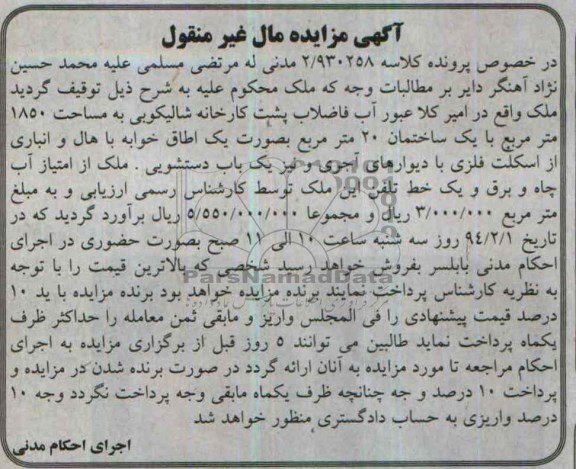 آگهی مزایده مال غیر منقول
در خصوص پرونده کلاسه ۲/۹۳۰۲۵۸ مدنی له مرتضی مسلمی علیه محمد حسین
نژاد آهنگر دایر بر مطالبات وجه که ملک محکوم علیه به شرح ذیل توقیف گردید
ملک واقع در امیر کلا عبور آب فاضلاب پشت کارخانه شالیکوبی به مساحت ۱۸۵۰
متر مربع با یک ساختمان ۲۰ متر مربع بصورت یک اطاق خوابه با هال و انباری
از اسکلت فلزی با دیوارهای آجری و نیز یک باب دستشویی . ملک از امتیاز آب
چاه و برق و یک خط تلفن این ملک توسط کارشناس رسمی ارزیابی و به مبلغ
متر مربع ۳/۰۰۰/۰۰۰ ریال و مجموعا ۵/۵۵۰/۰۰۰/۰۰۰ ریال برآورد گردید که در
تاریخ ۹۴/۲/۱ روز سه شنبه ساعت ۱۰ الی ۱۱ صبح بصورت حضوری در اجرای
احکام مدنی بابلسر بفروش خواهد رسید شخصی که بالاترین قیمت را با توجه
ParsNamadData
به نظریه کارشناس پرداخت نمایند برنده مزایده خواهد بود برنده مزایده با ید ۱۰
درصد قیمت پیشنهادی را فی المجلس واریز و مابقی ثمن معامله را حداکثر ظرف
یکماه پرداخت نماید طالبین می توانند ۵ روز قبل از برگزاری مزایده به اجرای
احکام مراجعه تا مورد مزایده به آنان ارائه گردد در صورت برنده شدن در مزایده و
پرداخت ۱۰ درصد و جه چنانچه ظرف یکماه مابقی وجه پرداخت نگردد وجه ۱۰
درصد واریزی به حساب دادگستری منظور خواهد شد
اجرای احکام مدنی